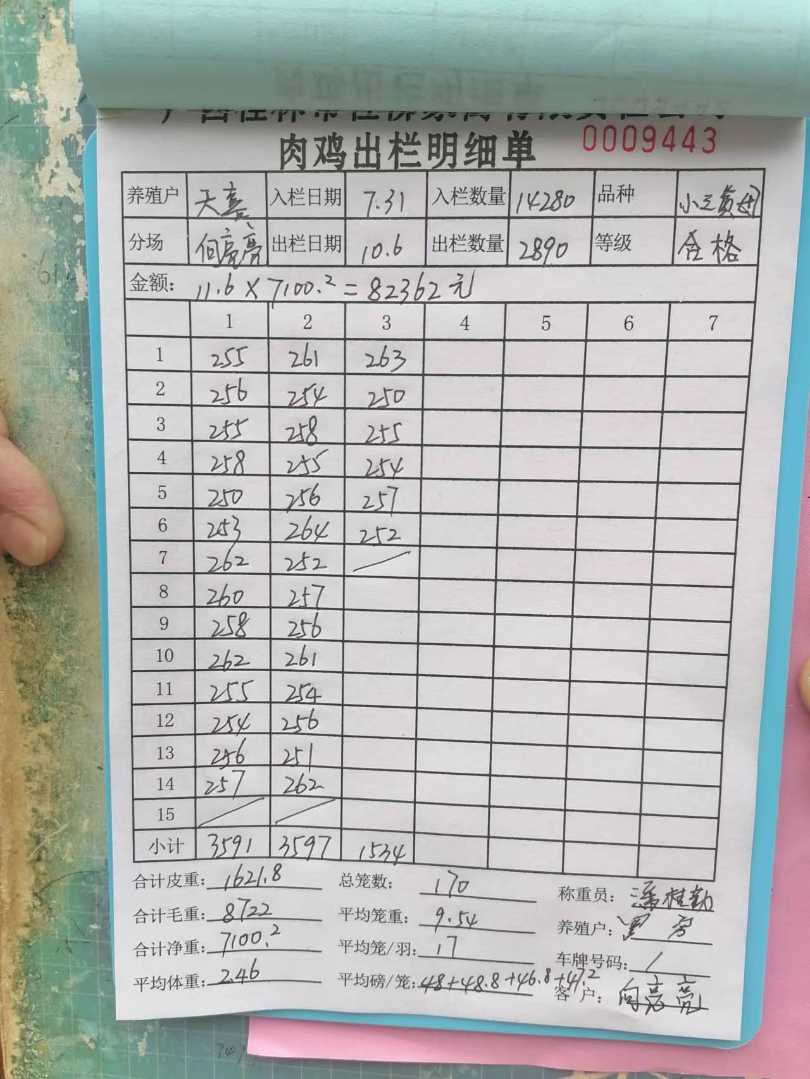 肉鸡出栏明细单 0009443
养殖户 天喜 入栏日期 7.31 入栏数量 14280 品种
分场 向亮亮 出栏日期 10.6 出栏数量 2890 等级 合格
金额: 11.6 × 7100.2 = 82362元
1 2 3 4 5 6 7
1 255 261 263
2 256 254 250
3 255 258 255
4 258 255 254
5 250 256 257
6 253 264 252
7 262 252 /
8 260 257
9 258 256
10 262 261
11 255 254
12 254 256
13 256 251
14 257 262
15 / /
小计 3591 3597 1534
合计皮重: 1621.8 总笼数: 170 称重员:
合计毛重: 8722 平均笼重: 9.54 养殖户:
合计净重: 7100.2 平均笼/羽: 17 车牌号码: /
平均体重: 2.46 平均磅/笼: 48+48.8+46.8+47.2 客户: 向亮亮